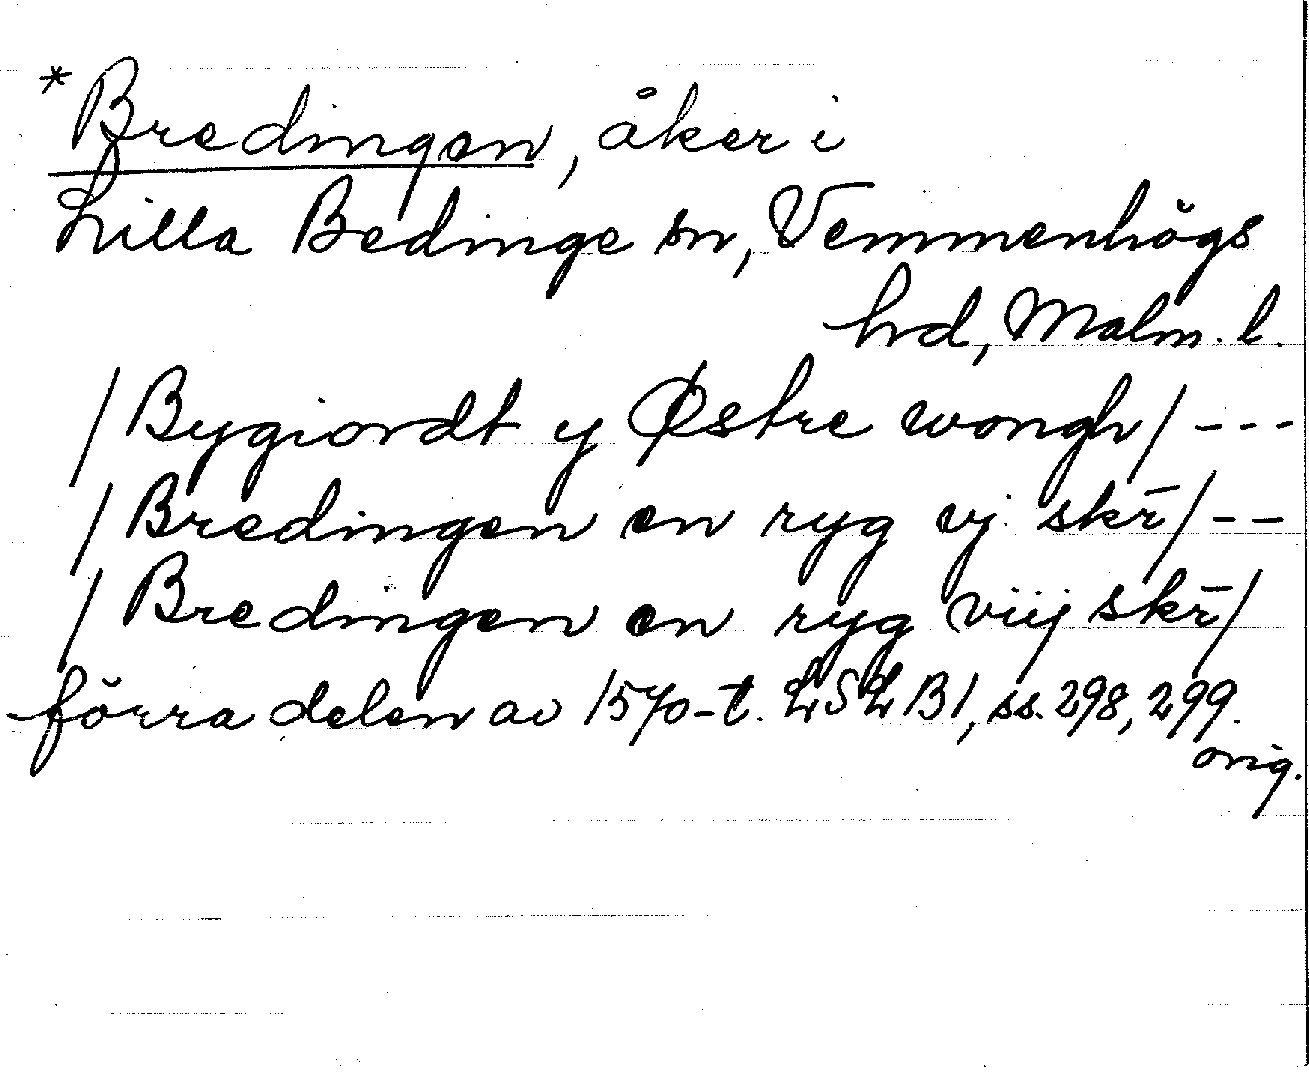 *Bredingen, åker i
Lilla Bedinge sn, Vemmenhögs
hrd, Malm. l.
/Bygiordt y Østre wongh/ ---
/Bredingen en ryg vj skr̄/ --
/Bredingen en ryg viij skr̄/
förra delen av 1570-t. LSLB1, ss. 298, 299.
orig.